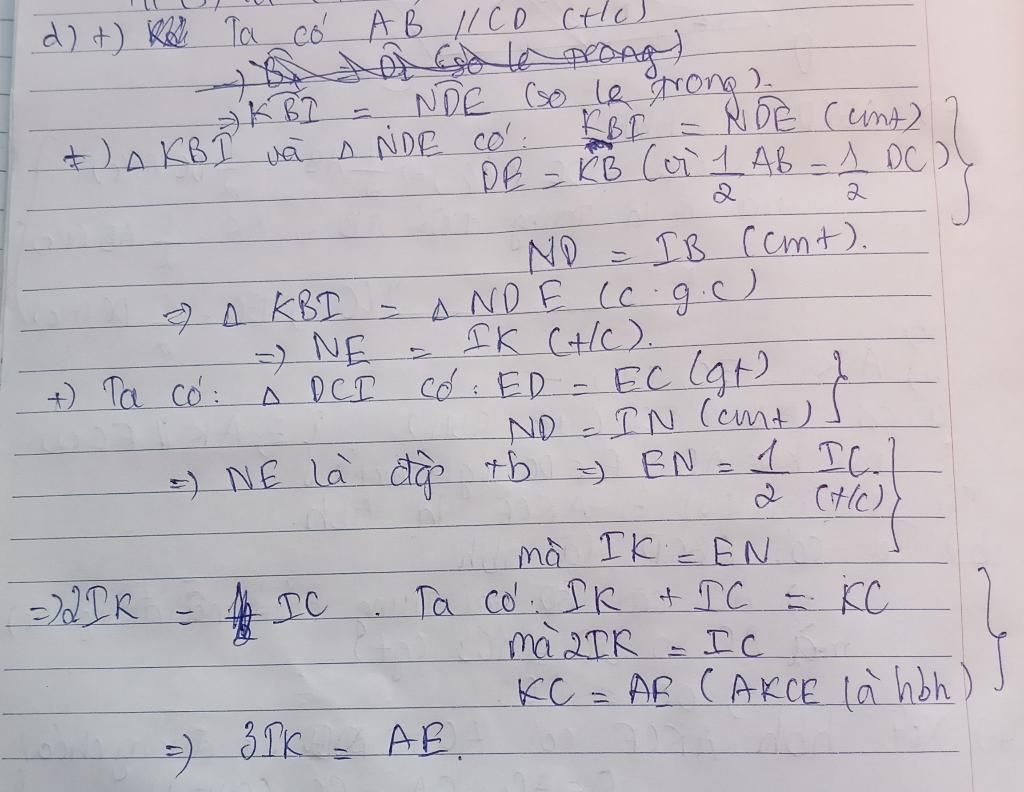 d) +) Ta có AB // CD (t/c)
⇒ B̂₁ = D̂₁ (so le trong)
⇒ KBI = NDE (so le trong).
+) Δ KBI và Δ NDE có: KBI = NDE (cmt)
DE = KB (vì 1/2 AB = 1/2 DC)
ND = IB (cmt).
⇒ Δ KBI = Δ NDE (c.g.c)
⇒ NE = IK (t/c).
+) Ta có: Δ DCI có: ED = EC (gt)
ND = IN (cmt)
⇒ NE là đg tb ⇒ EN = 1/2 IC. (t/c)
mà IK = EN
⇒ 2IK = IC. Ta có: IK + IC = KC
mà 2IK = IC
KC = AE (AKCE là hbh)
⇒ 3IK = AE.